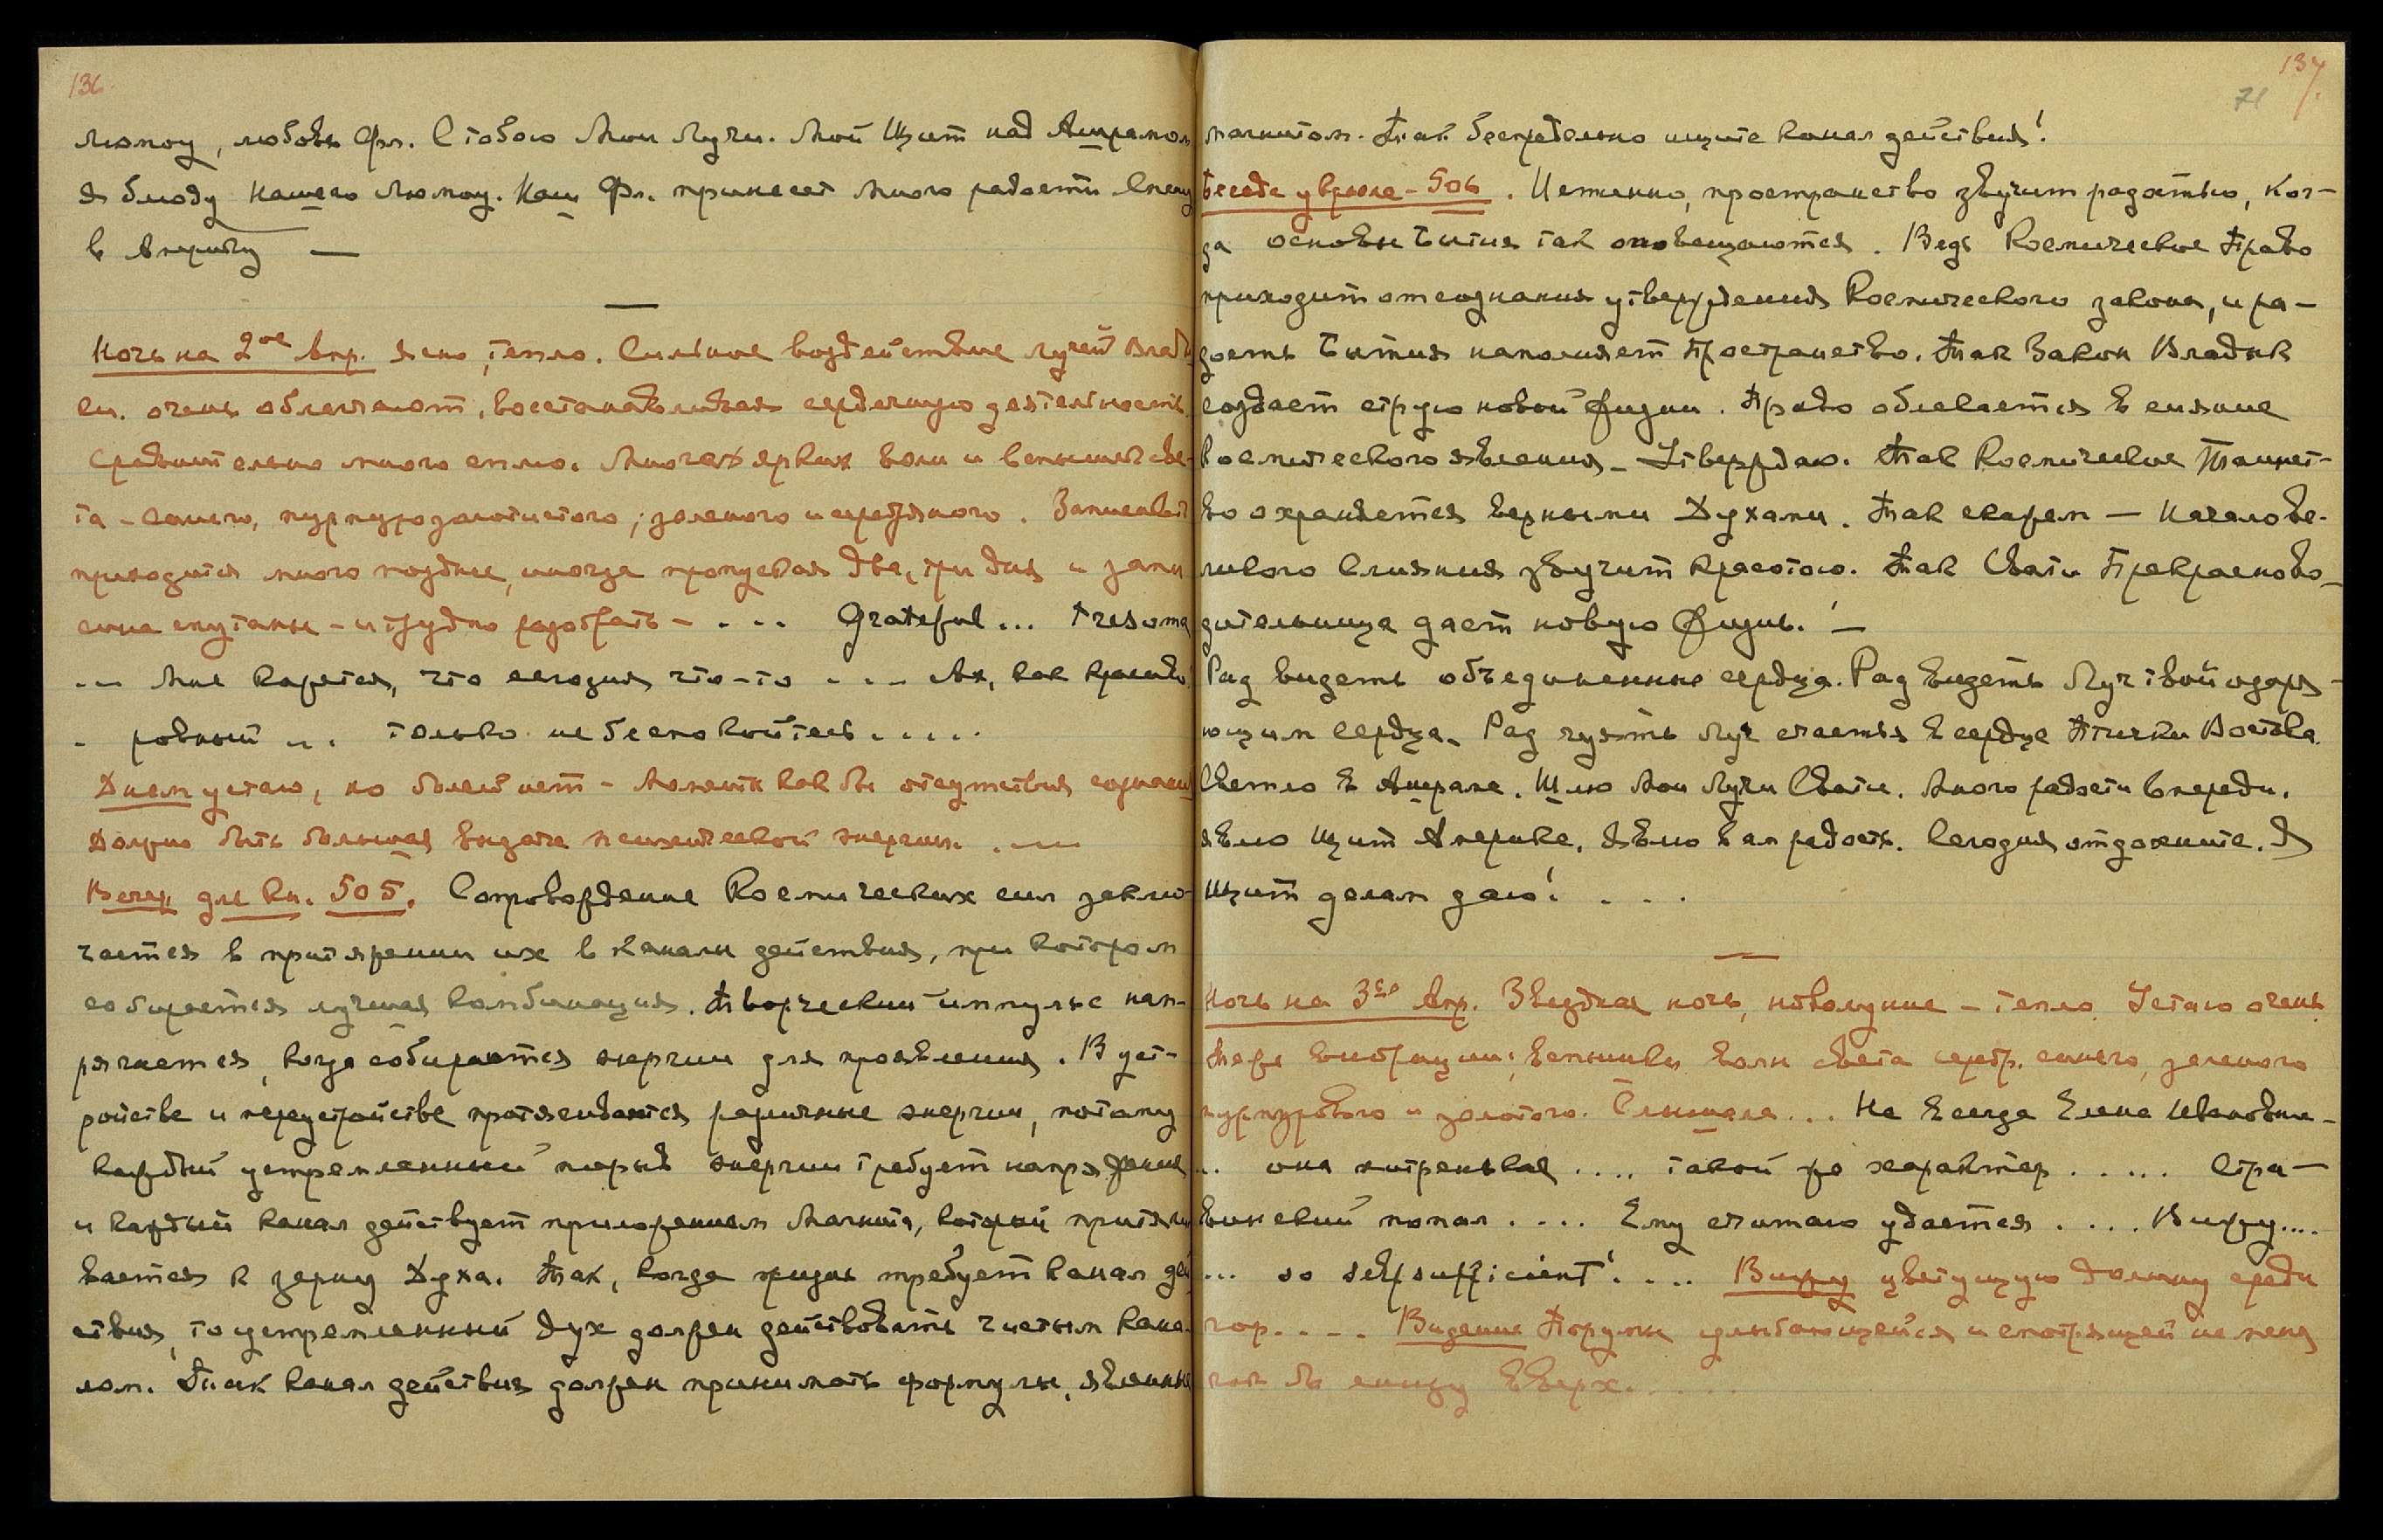 136.
Люмоу, любовь Фл. С тобою Мои Лучи. Мой Щит над Ашрамом
Я блюду Нашего Люмоу. Наш Фл. принесет много радости. Спешу
в Америку —
Ночь на 2ое Апр. Ясно, тепло. Сильное воздействие лучей Влады
ки. очень облегчают, восстанавливая сердечную деятельность
Сравнительно много спала. Много ярких волн и вспышек све-
та – синего, пурпурозолотистого, зеленого и серебряного. Записывать
приходится много позднее, иногда пропуская два, три дня и запи
си спутаны – и трудно разобрать – . . . Grateful ... tresoma
... Мне кажется, что сегодня что-то . . . Ах, как красиво
. ровный ... только не беспокойтесь . . . . .
Днем устаю, но болей нет – Моменты как бы отсутствия сознания
Должно быть большая выдача психической энергии. . . .
Вечер для кн. 505. Сопровождение Космических сил заклю-
чается в притяжении их в каналы действия, при котором
собирается лучшая комбинация. Творческий импульс нап-
рягается, когда собираются энергии для проявления. В уст-
ройстве и переустройстве протягиваются различные энергии, потому
каждый устремленный порыв энергии требует напряжения
и каждый канал действует приложением Магнита, который притяги
вается к зерну Духа. Так, когда жизнь требует канал дей
ствия, то устремленный дух должен действовать чистым кана-
лом. Так канал действия должен принимать формулы, явленные
137.
71
магнитом. Так беспредельно ищите канал действия!
Беседа у врече – 506. Истинно, пространство звучит радостью, ког-
да основы Бытия так оповещаются. Ведь Космическое Право
приходит от сознания утверждения Космического закона, и ра-
дость Бытия наполняет Пространство. Так Закон Владык
создает струю новой жизни. Право облекается в сияние
Космического явления – Утверждаю. Так Космическое Таинст-
во охраняется верными Духами. Так скажем — Начало ве-
ликого слияния звучит красотою. Так Свати Прекрасново-
дительница дает новую жизнь! —
Рад видеть объединенные сердца. Рад видеть Луч твой озаря-
ющим сердца. Рад чуять луч счастья в сердце Птички Востока.
Светло в Ашраме. Шлю Мои Лучи Свати. Много радости впереди.
Явлю Щит Америке. Явлю вам радость. Сегодня отдохните. Я
Щит делам даю! . . .
Ночь на 3ье Апр. Звездная ночь, новолуние – тепло. Устаю очень
Те же вибрации; вспышки волн света серебр. синего, зеленого
пурпурового и золотого. Слышала... Не всегда Елена Ивановна –
.. она хитренькая .... такой же характер ..... Стра-
винский попал .... Ему считаю удается .... Вижу....
... so self sufficient! .... Вижу цветущую долину среди
гор.... Видение Порумы улыбающейся и смотрящей на меня
как бы снизу вверх. ....